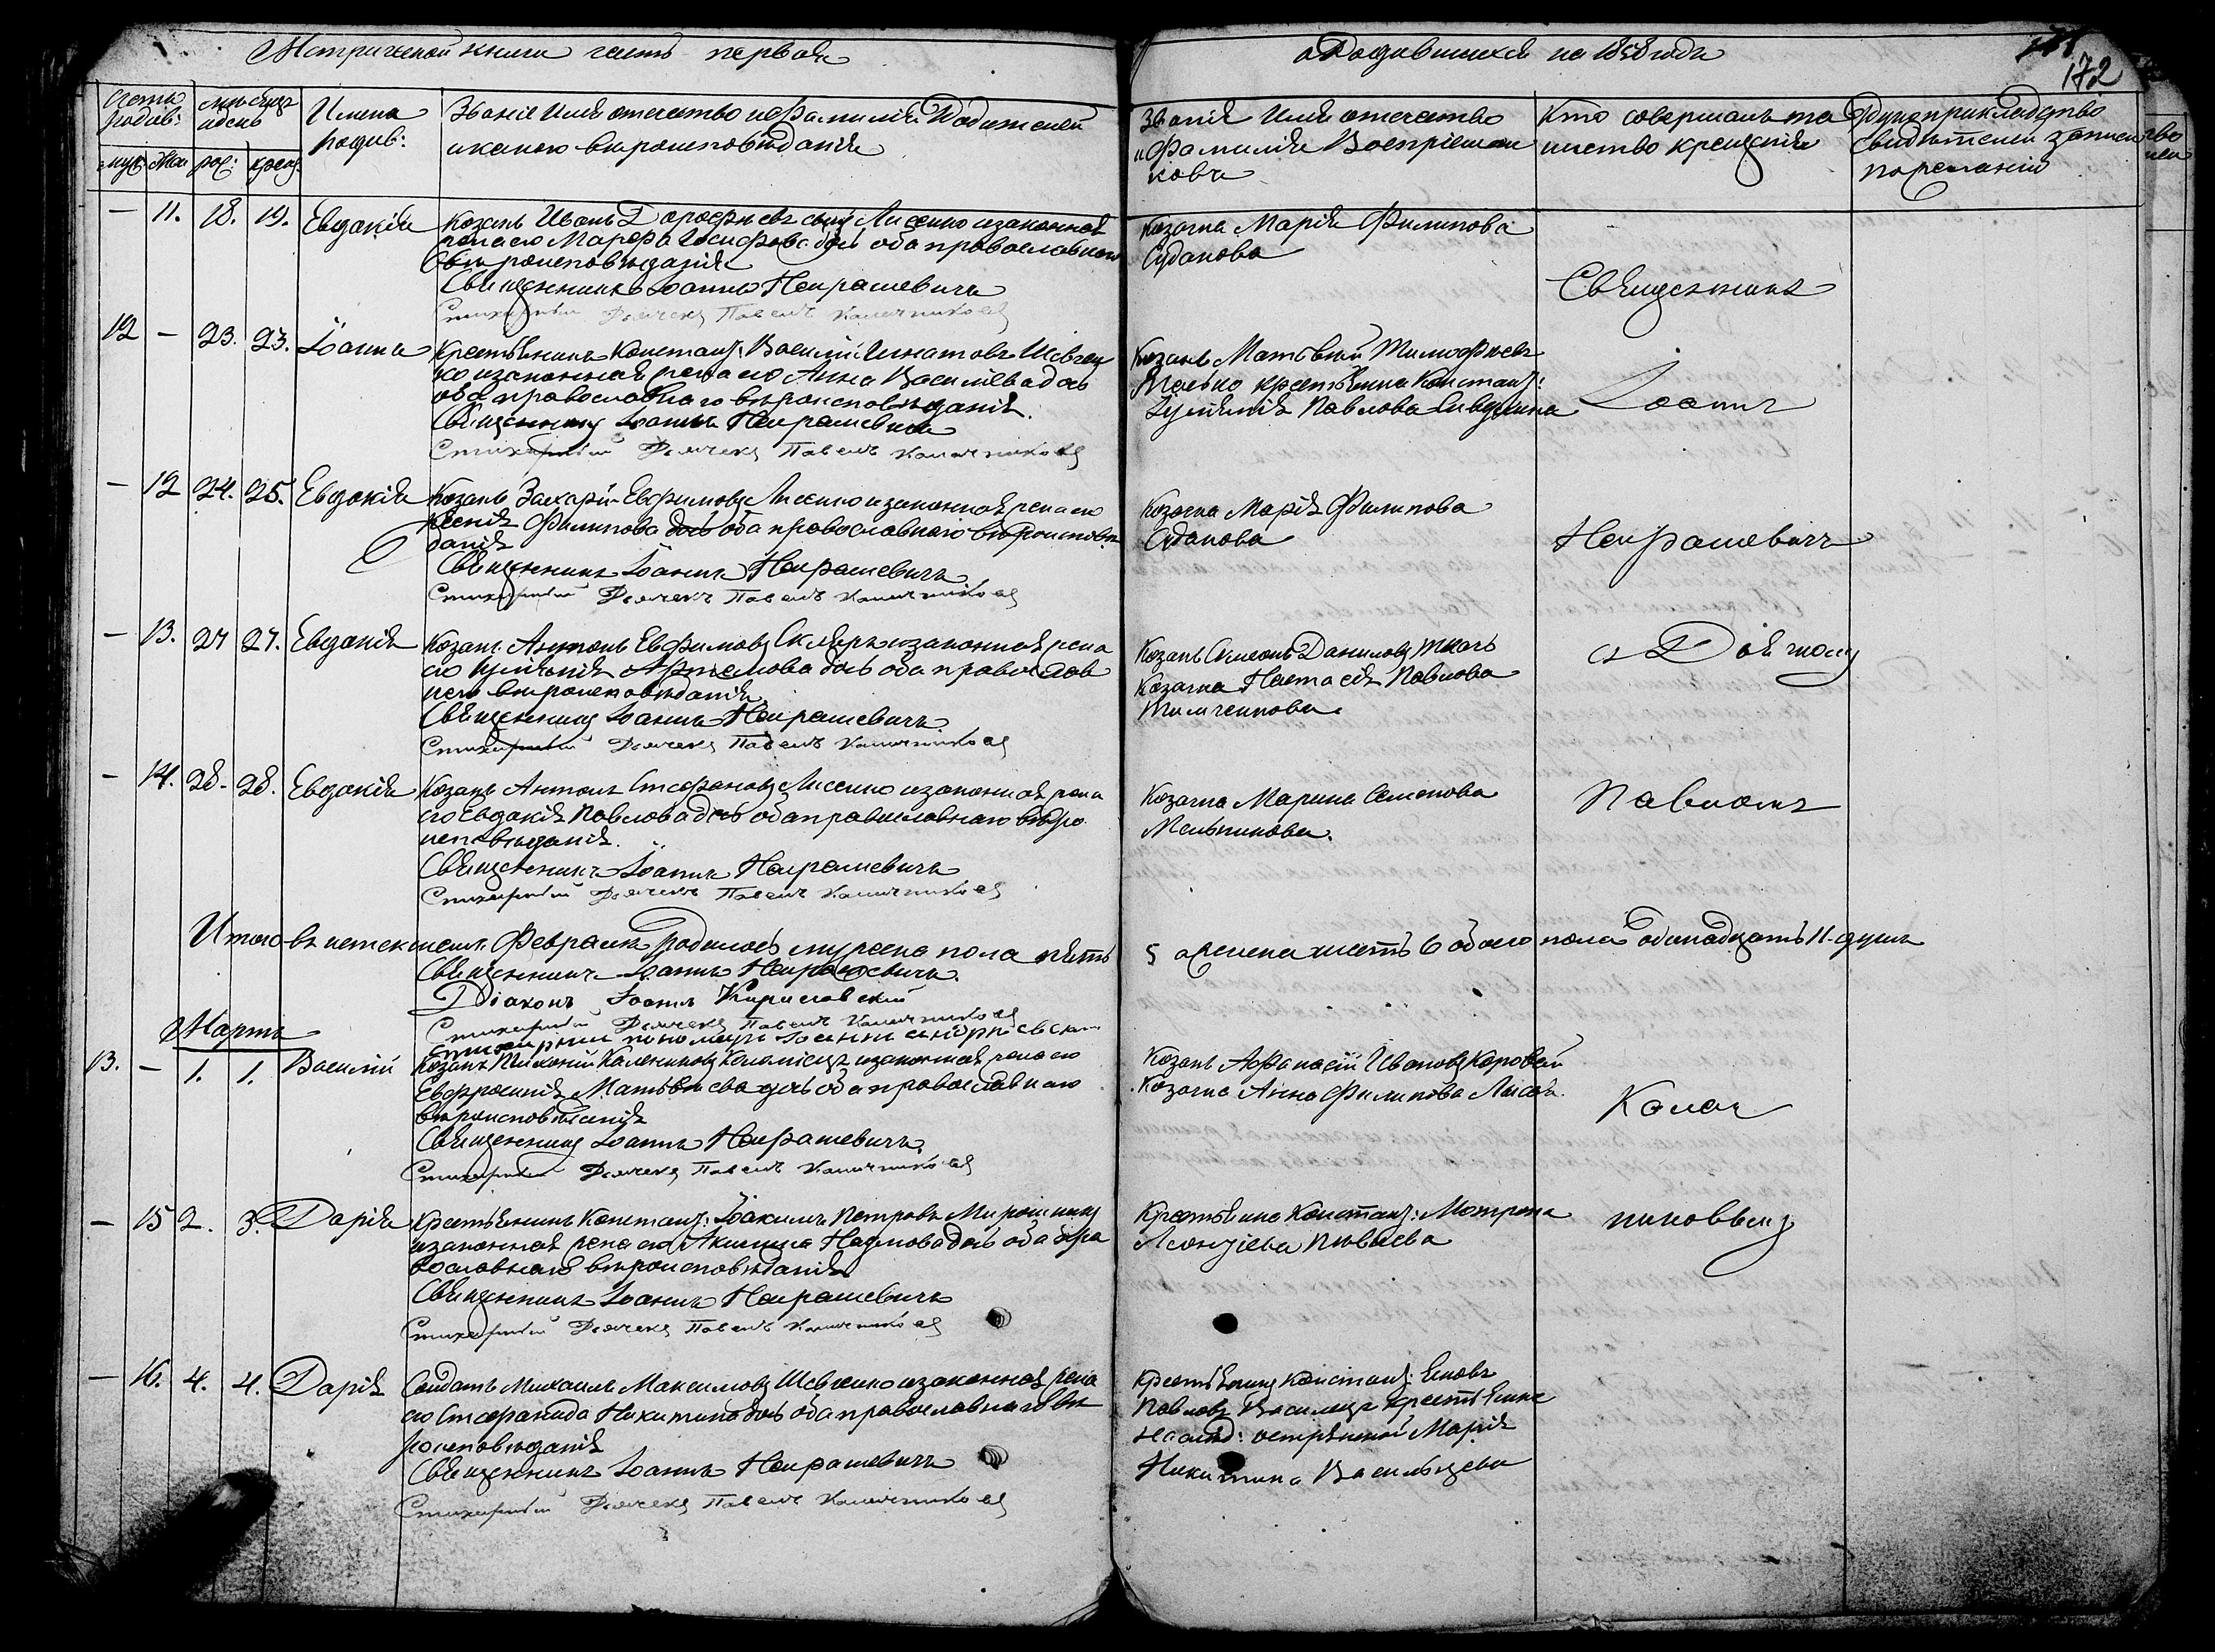 Метрической книги часть первая
о Родившихся на 1858 годъ
172
Счетъ родив:
мѣсяцъ и день
Имена родив:
Званіе Имя отечество и Фамилія Родителей
и какого вѣроисповѣданія
муж: Жен
рож: крещ:
Званія Имя отечество
и Фамилія Воспріемни
ковъ
Кто совершалъ та
инство крещенія
Рукоприкладство
свидѣтелей записи
по желанію
— 11. 18. 19. Евдокія
Козакъ Иванъ Дорофѣевъ сынъ Лисенко и законная
жена его Марфа Іосифова дочь оба православнаго
вѣроисповѣданія
Священникъ Іоаннъ Нещрашевичъ
Стихарный Дьячекъ Павелъ Калачниковъ
Козачка Марія Филипова
Судакова
Священникъ
12 — 23. 23. Іоаннъ
Крестьянинъ Констант: Василій Игнатовъ Шевчен
ко и законная жена его Анна Василіева дочь
оба православнаго вѣроисповѣданія.
Священникъ Іоаннъ Нещрашевичъ
Стихарный Дьячекъ Павелъ Калачниковъ
Козакъ Матвѣй Тимофѣевъ
крестьянка Констант:
Іуліянія Павлова
Іоаннъ
— 12 24. 25. Евдокія
Козакъ Захарій Евфимовъ Лисенко и законная жена его
Ксенія Филипова дочь оба православнаго вѣроисповѣ
данія
Священникъ Іоаннъ Нещрашевичъ
Стихарный Дьячекъ Павелъ Калачниковъ
Козачка Марія Филипова
Судакова
Нещрашевичъ
— 13. 27 27. Евдокія
Козакъ Антонъ Евфимовъ Скляръ и законная жена
его Іуліянія Артемова дочь оба православ
наго вѣроисповѣданія
Священникъ Іоаннъ Нещрашевичъ
Стихарный Дьячекъ Павелъ Калачниковъ
Козакъ Симеонъ Даниловъ Ткачь
Козачка Настасія Павлова
Тимченкова.
съ Дьячкомъ
— 14. 28. 28. Евдокія
Козакъ Антонъ Стефановъ Лисенко и законная жена
его Евдокія Павлова дочь оба православнаго вѣро
исповѣданія.
Священникъ Іоаннъ Нещрашевичъ
Стихарный Дьячекъ Павелъ Калачниковъ
Козачка Марина Семенова
Мельникова.
Павломъ
Итого въ истекшемъ Февралѣ родилось мужеска пола пять
5 а женска шесть 6 обоего пола одинадцать 11. душъ
Священникъ Іоаннъ Нещрашевичъ.
Діаконъ Іоаннъ
Стихарный Дьячекъ Павелъ Калачниковъ
Стихарный пономарь Іоаннъ
Мартъ
13. — 1. 1. Василій
Козакъ Тихоній Калениковъ и законная жена его
Евфросинія Матвѣева дочь оба православнаго
вѣроисповѣданія
Священникъ Іоаннъ Нещрашевичъ.
Стихарный Дьячекъ Павелъ Калачниковъ
Козакъ Афанасій Ивановъ Коровай
Козачка Анна Филипова Лисова.
Калач
— 15 2. 3. Дарія
Крестьянинъ Констант: Іоакимъ Петровъ Мирошник
и законная жена его Акилина Наумова дочь оба пра
вославнаго вѣроисповѣданія
Священникъ Іоаннъ Нещрашевичъ
Стихарный Дьячекъ Павелъ Калачниковъ
Крестьянка Констант: Мотрона
Леонтіева
никовымъ
— 16. 4. 4. Дарія
Солдатъ Михаилъ Максимовъ Шевченко и законная жена
его Стефанида Никитина дочь оба православнаго вѣ
роисповѣданія
Священникъ Іоаннъ Нещрашевичъ
Стихарный Дьячекъ Павелъ Калачниковъ
Крестьянинъ Констант:
Павловъ Василецъ Крестьянка
Марія
Никитина Васильцева